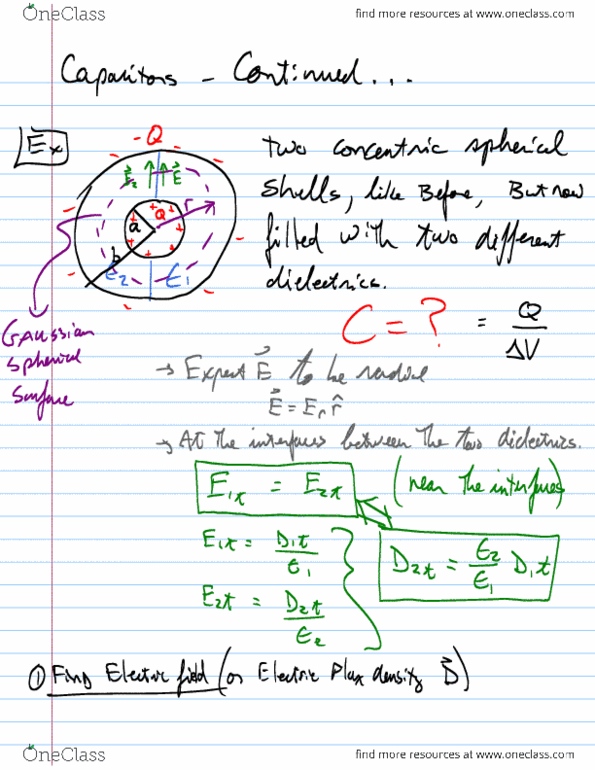 OneClass
find more resources at www.oneclass.com
Capacitors – Continued...
Ex
-Q
E₂ E
r
Q
a
b
ε₂ ε₁
two concentric spherical
shells, like Before, But now
filled with two different
dielectrics.
Gaussian
spherical
surface
C = ? = Q/ΔV
→ Expect E to be radial
E = Eᵣ r̂
→ At the interfaces between the two dielectrics.
E₁t = E₂t (near the interfaces)
E₁t = D₁t/ε₁
D₂t = ε₂/ε₁ D₁t
E₂t = D₂t/ε₂
① Find Electric field (or Electric Flux density D)
OneClass
find more resources at www.oneclass.com